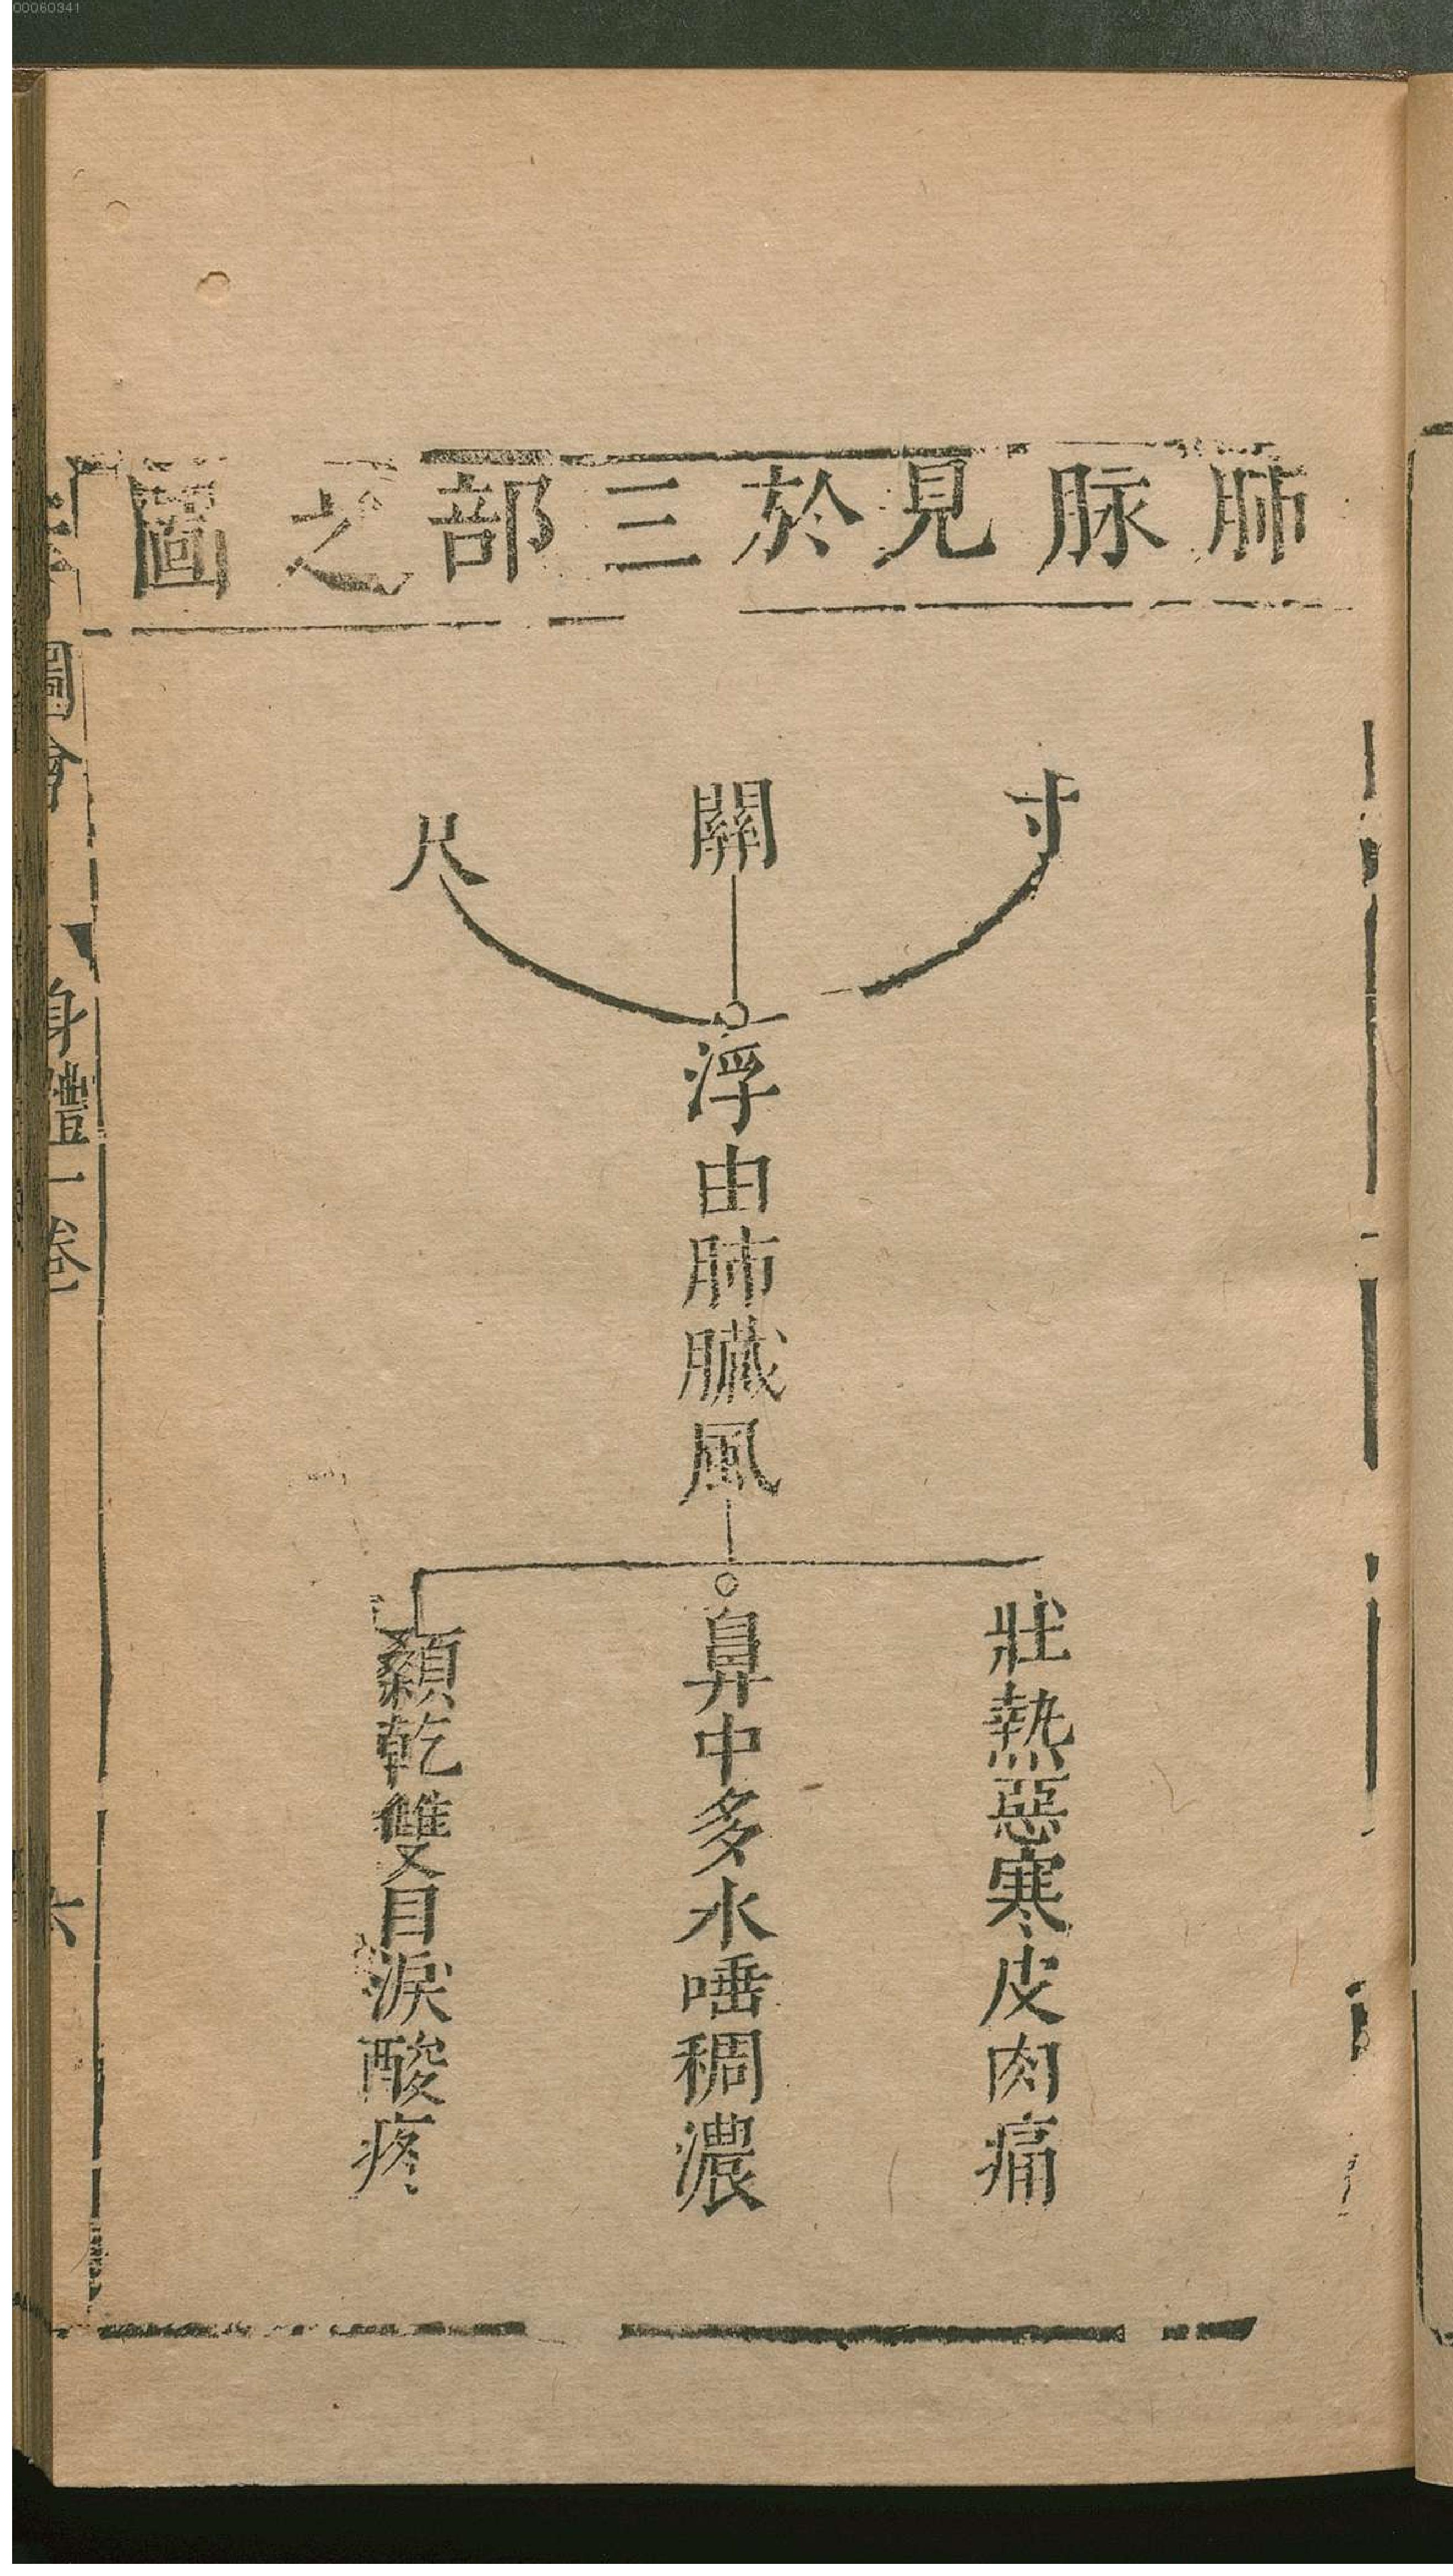 00060341
肺脉見於三部之圖
寸
關
尺
浮由肺臟風
壯熱惡寒皮肉痛
鼻中多水唾稠濃
顙乾雙目淚酸疼
圖會
身體一卷
六